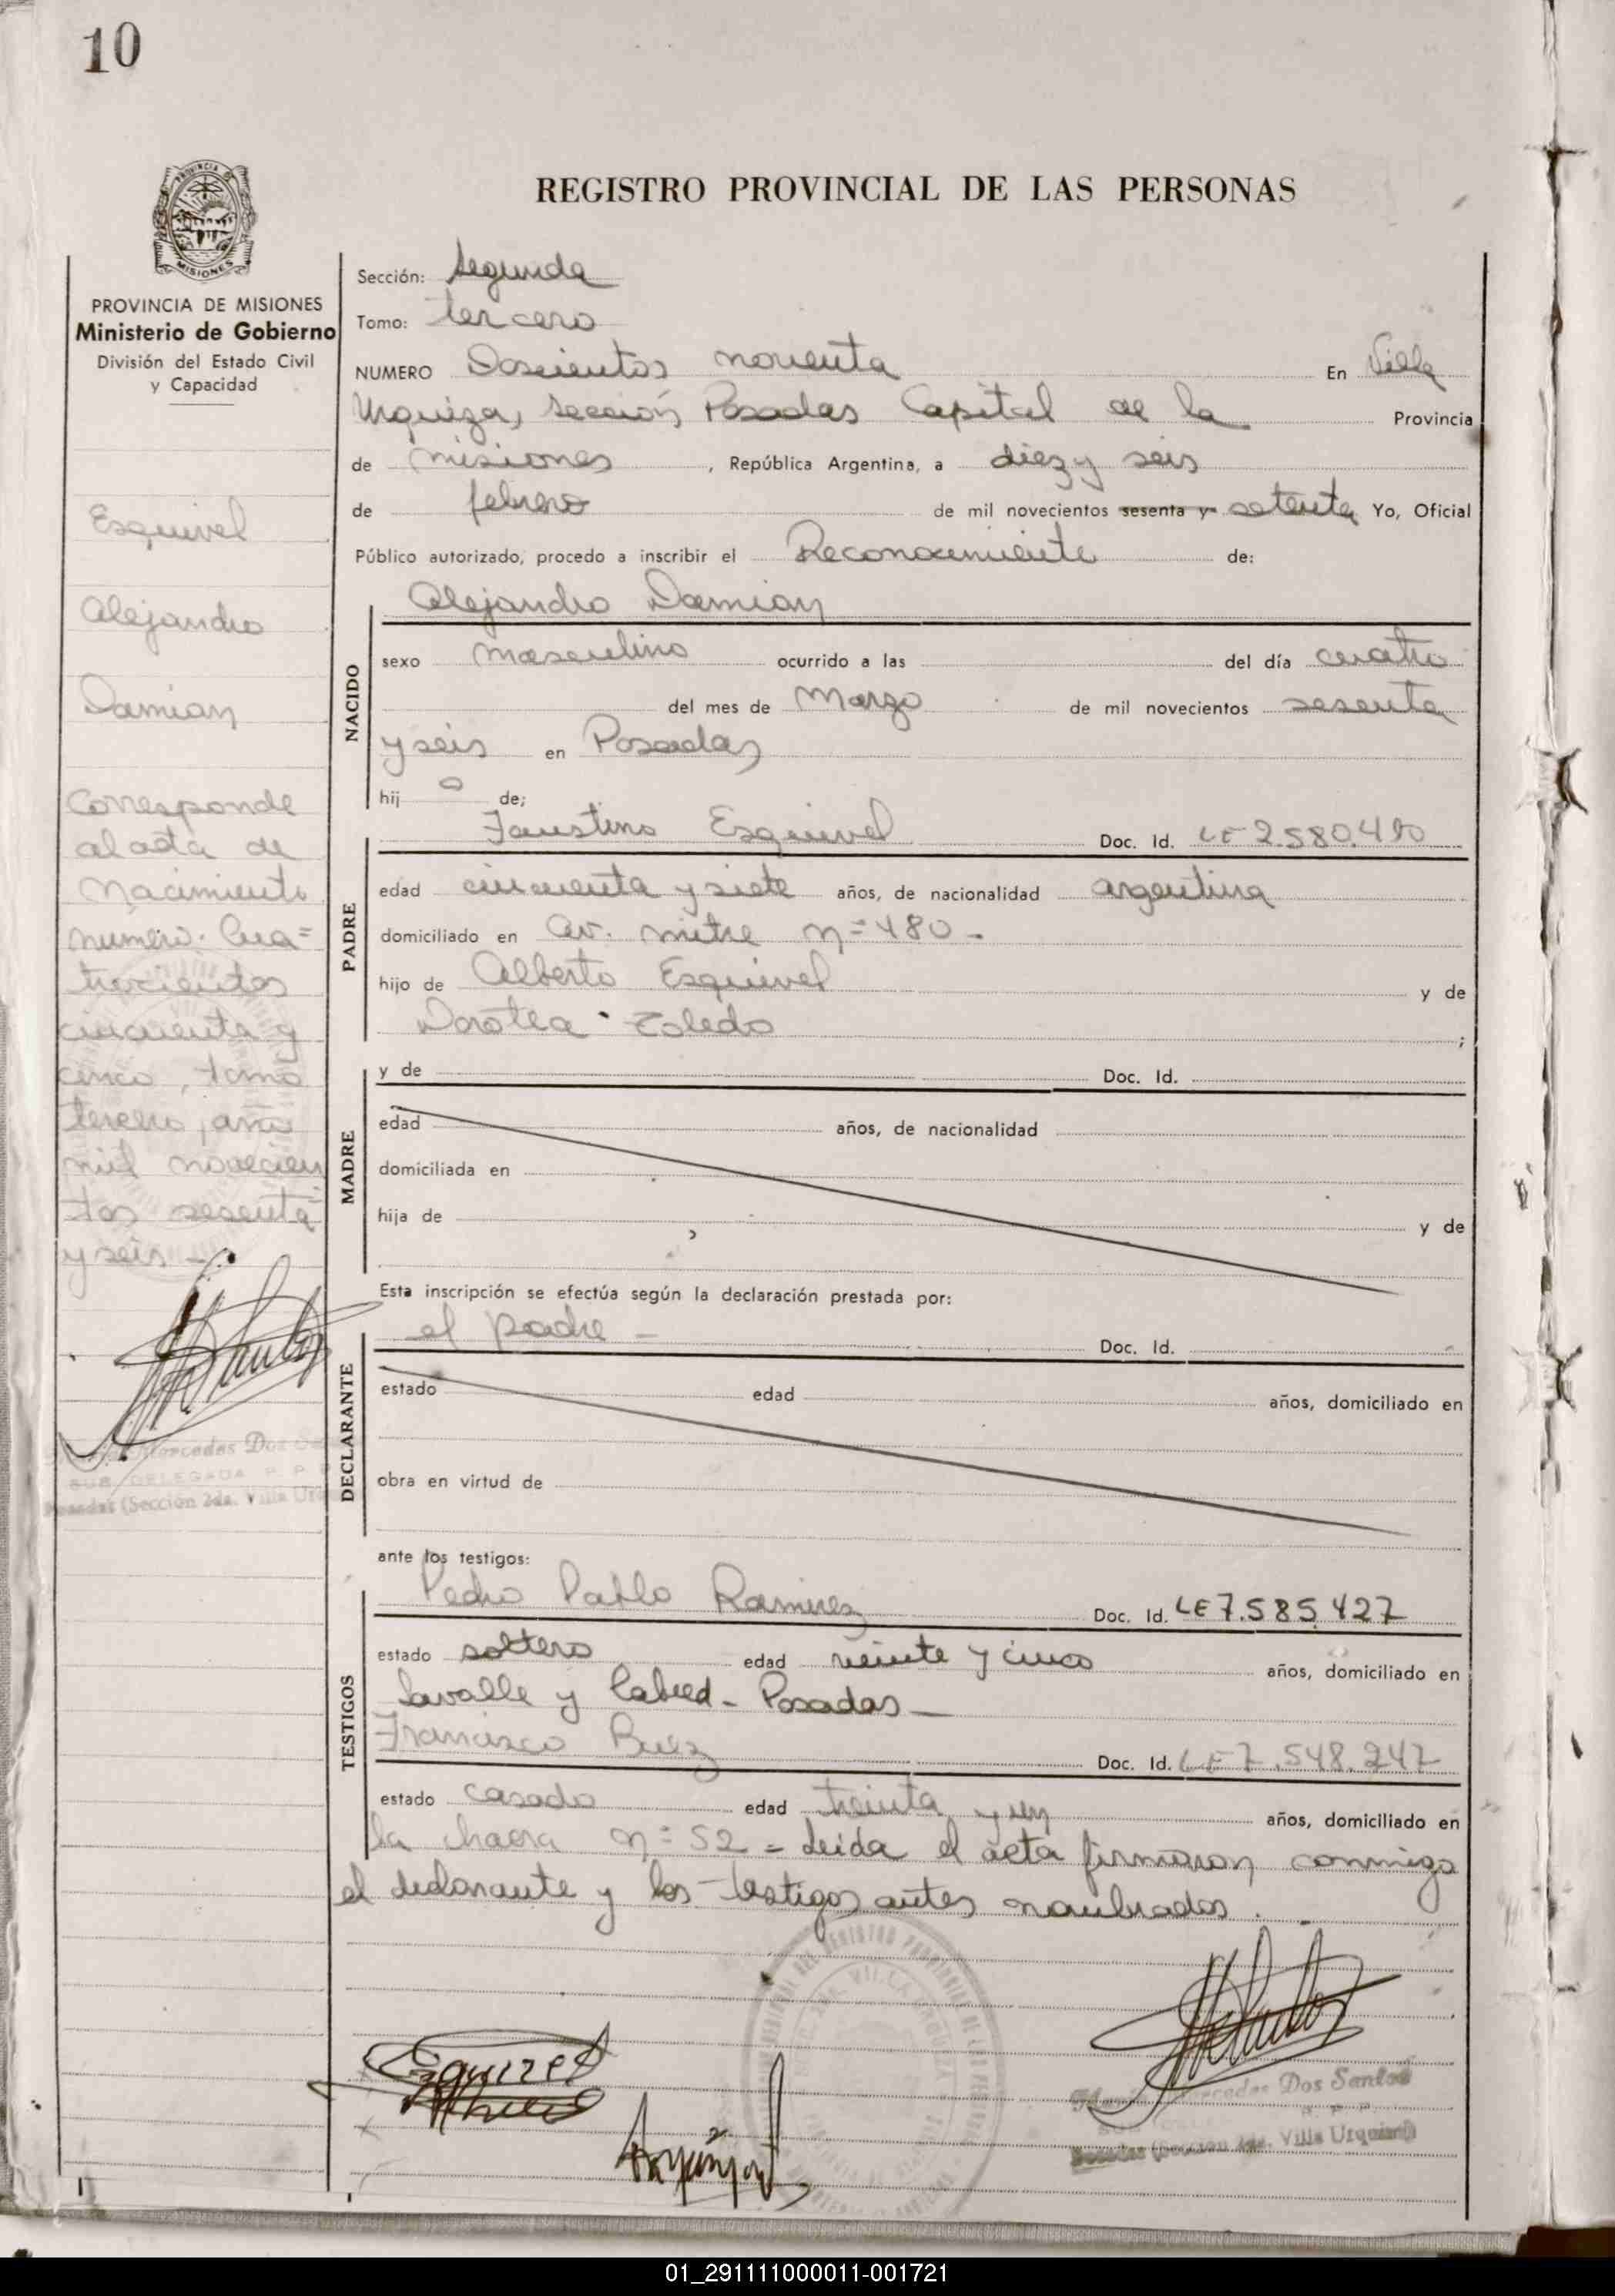 10
PROVINCIA DE
MISIONES
REGISTRO PROVINCIAL DE LAS PERSONAS
PROVINCIA DE MISIONES
Ministerio de Gobierno
División del Estado Civil
y Capacidad
Esquivel
Alejandro
Damian
Corresponde
al acta de
Nacimiento
numero. Cua=
trocientos
cincuenta y
cinco, tomo
tercero, año
mil novecien
tos sesenta
y seis -.
Mercedes Dos
SUB DELEGADA R. P. P.
Posadas (Sección 2da. Villa
Sección: Segunda
Tomo: tercero
NUMERO Doscientos noventa En Villa
Urquiza, sección Posadas Capital de la Provincia
de misiones, República Argentina, a diez y seis
de febrero de mil novecientos sesenta y setenta Yo, Oficial
Público autorizado, procedo a inscribir el Reconocimiento de:
Alejandro Damian
NACIDO
sexo masculino ocurrido a las del día cuatro
del mes de Marzo de mil novecientos sesenta
y seis en Posadas
hij o de;
Faustino Esquivel Doc. Id. LE 2.580.490
PADRE
edad cincuenta y siete años, de nacionalidad argentina
domiciliado en Av. mitre n=480-
hijo de Alberto Esquivel y de
Dorotea Toledo ;
y de Doc. Id.
MADRE
edad años, de nacionalidad
domiciliada en
hija de y de
Esta inscripción se efectúa según la declaración prestada por:
el padre - Doc. Id.
DECLARANTE
estado edad años, domiciliado en
obra en virtud de
ante los testigos:
Pedro Pablo Ramirez Doc. Id. LE 7.585.427
TESTIGOS
estado soltero edad veinte y cinco años, domiciliado en
Lavalle y Cabred - Posadas -
Francisco Doc. Id. LE 7.548.247
estado casado edad treinta y un años, domiciliado en
la chacra n=52 = Leída el acta firmaron conmigo
el declarante y los testigos antes nombrados.
Esquivel
Mercedes Dos Santos
Posadas (Sección 2da. Villa Urquiza)
01_291111000011-001721